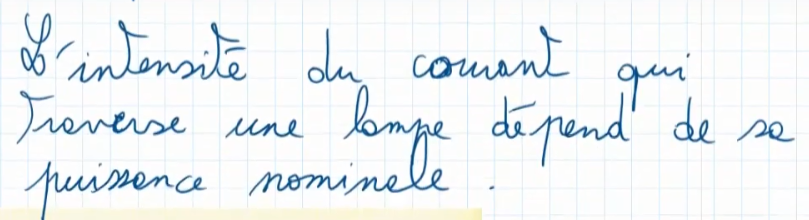 L'intensité du courant qui
Traverse une lampe dépend de sa
puissance nominale.